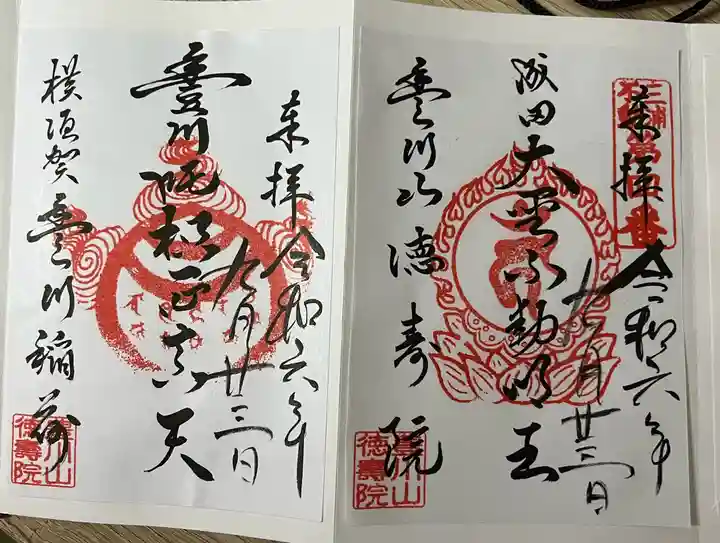 三浦
来拝 令和六年
九月廿三日
成田大聖不動明王
豊川山 徳寿院
豊川山
徳壽院
来拝 令和六年
九月廿三日
豊川吒枳尼真天
横須賀 豊川稲荷
豊川山
徳壽院